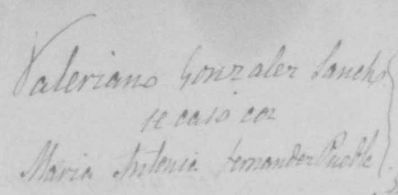 Valeriano Gonzalez Sancho
se caso con
Maria Antonia Fernandez Puebla